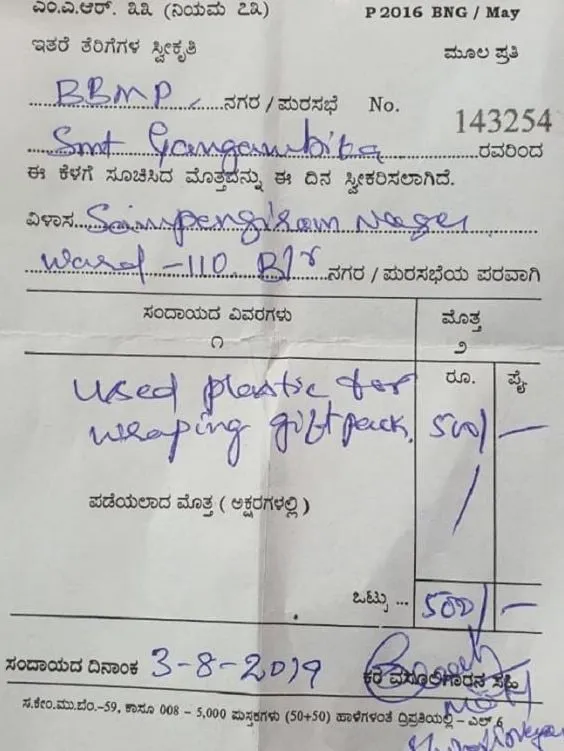 ಎಂ.ಎ.ಆರ್. ೩೩ (ನಿಯಮ ೭೩) P 2016 BNG / May
ಇತರೆ ತೆರಿಗೆಗಳ ಸ್ವೀಕೃತಿ ಮೂಲ ಪ್ರತಿ
BBMP ನಗರ / ಪುರಸಭೆ No. 143254
Smt Gangambika ರವರಿಂದ
ಈ ಕೆಳಗೆ ಸೂಚಿಸಿದ ಮೊತ್ತವನ್ನು ಈ ದಿನ ಸ್ವೀಕರಿಸಲಾಗಿದೆ.
ವಿಳಾಸ Nagar
Ward - 110 ನಗರ / ಪುರಸಭೆಯ ಪರವಾಗಿ
ಸಂದಾಯದ ವಿವರಗಳು ಮೊತ್ತ
೧ ೨
ರೂ. ಪೈ
used plastic for
wraping gift pack. 500/ —
ಪಡೆಯಲಾದ ಮೊತ್ತ ( ಅಕ್ಷರಗಳಲ್ಲಿ )
ಒಟ್ಟು ... 500/ —
ಸಂದಾಯದ ದಿನಾಂಕ 3-8-2019 ಕರ ವಸೂಲಿಗಾರನ ಸಹಿ
ಸ.ಕೇಂ.ಮು.ಬೆಂ.-59, ಕಾಸೂ 008 - 5,000 ಪುಸ್ತಕಗಳು (50+50) ಹಾಳೆಗಳಂತೆ ದ್ವಿಪ್ರತಿಯಲ್ಲಿ - ಎಲ್ 6